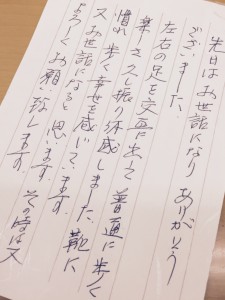 先日はお世話になり ありがとう
ございました。
左右の足を交互に出て
楽しさ 久し振り体感しました 普通に歩く
慣れ 歩く幸せを感じています。 靴に
又お世話になると思います。その時は又
よろしくお願い致します。